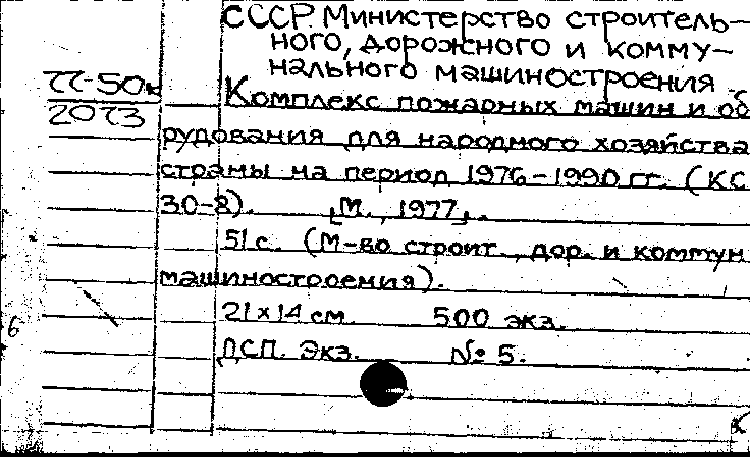 СССР. Министерство строитель-
ного, дорожного и комму-
нального машиностроения
77-50к
2073
Комплекс пожарных машин и об
рудования для народного хозяйства
страны на период 1976-1990 гг. (КС
30-8). [М., 1977].
51 с. (М-во строит., дор. и коммун
машиностроения).
21x14 см. 500 экз.
ДСП. Экз. № 5.